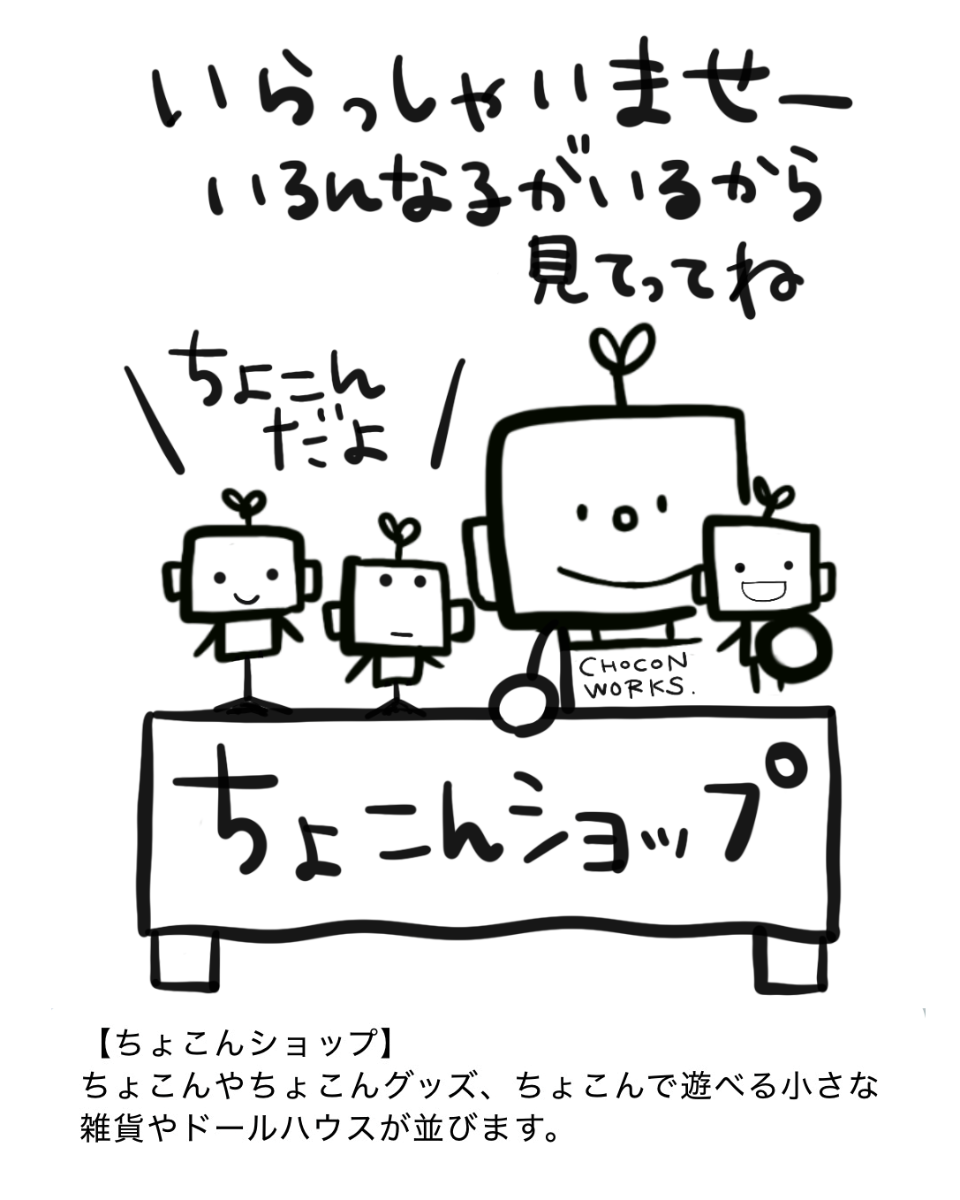 いらっしゃいませー
いろんな子がいるから
見てってね
ちょこん
だよ
CHOCON
WORKS.
ちょこんショップ
【ちょこんショップ】
ちょこんやちょこんグッズ、ちょこんで遊べる小さな
雑貨やドールハウスが並びます。